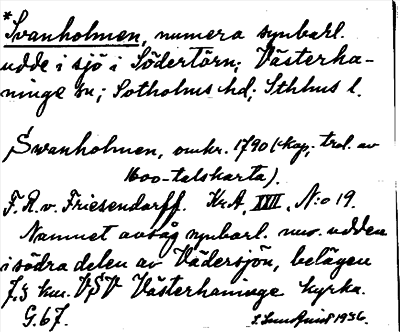 *Svanholmen, numera synbarl.
udde i sjö i Södertörn; Västerha-
ninge sn; Sotholms hd; Sthlms l.
Swanholmen, omkr. 1790 (kop. trol. av
1600-talskarta).
F. R. v. Friesendorff. KrA, XXII, N:o 19.
Namnet avsåg synbarl. nuv. udden
i södra delen av Vädersjön, belägen
7.5 km. VSV Västerhaninge kyrka.
G. 67.
1936.